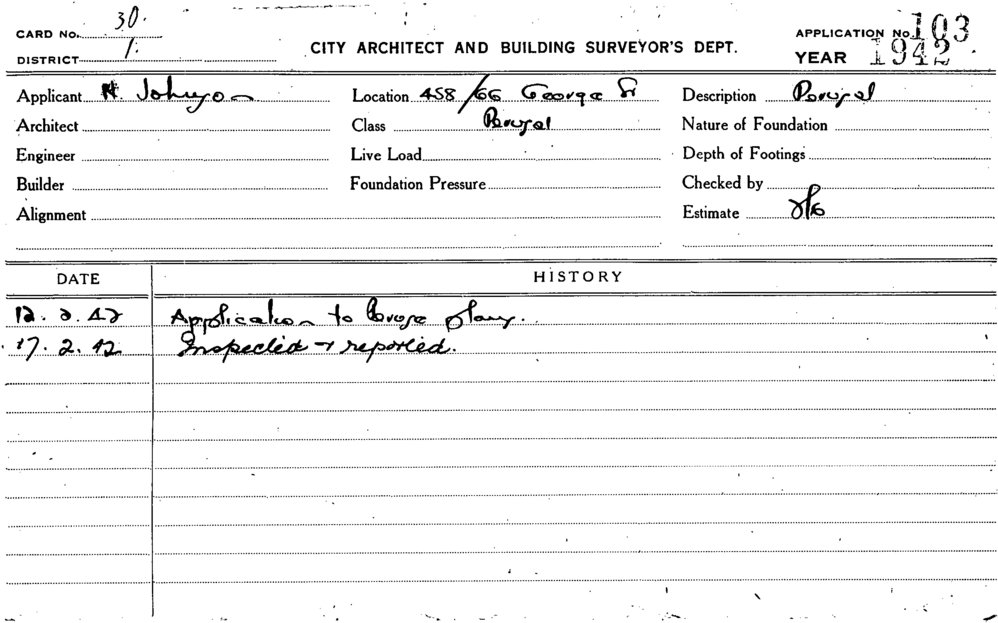 CARD No. 30.
APPLICATION No. 103
DISTRICT 1.
CITY ARCHITECT AND BUILDING SURVEYOR'S DEPT.
YEAR 1942
Applicant H. Johnson
Location 458/66 George St
Description Perusal
Architect
Class Perusal
Nature of Foundation
Engineer
Live Load
Depth of Footings
Builder
Foundation Pressure
Checked by
Alignment
Estimate 2/6
DATE HISTORY
12. 2. 42 Application to peruse plans.
17. 2. 42 Inspected + reported.